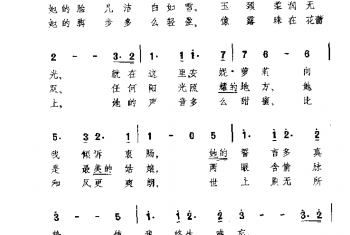 她的脸儿洁白如雪，玉颈柔润无
她的脚步多么轻盈，像露珠在花蕾
2 - - 3·2 | 1 · 1 1· | 7 7 6 - 6
光，就在这里安妮·萝莉向
双，任何阳光照耀的地方，她
上，她的声音多么甜蜜，比
5· 3 2· 1 | 1 - - 5 | 1· 1 2· 2
我倾诉衷肠，她的誓言多真
是最美的姑娘，两眼含愉脉
和风更爽朗，世上别无所
3 - - 5 | 1· 1 2· 2 | 3 - - 3·2